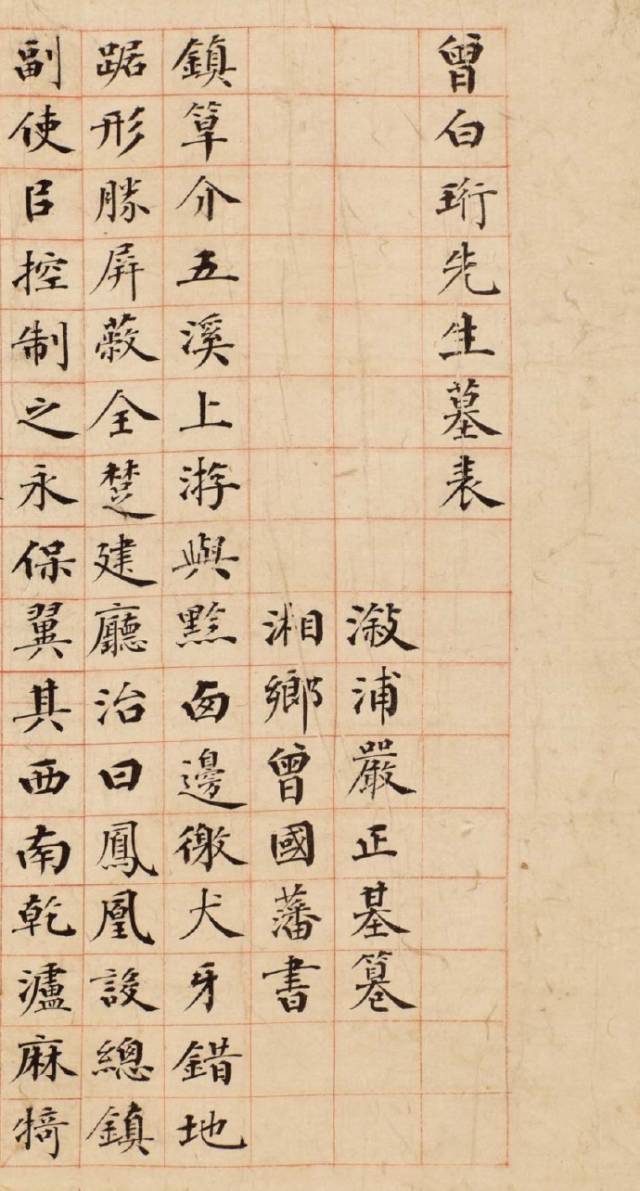 曾白珩先生墓表
漵浦嚴正基
湘鄉曾國藩書
鎮筸介五溪上游與黔邊徼犬牙錯地
踞形勝屏蔽全楚建廳治曰鳳凰設總鎮
副使㠯控制之永保翼其西南乾瀘麻犄